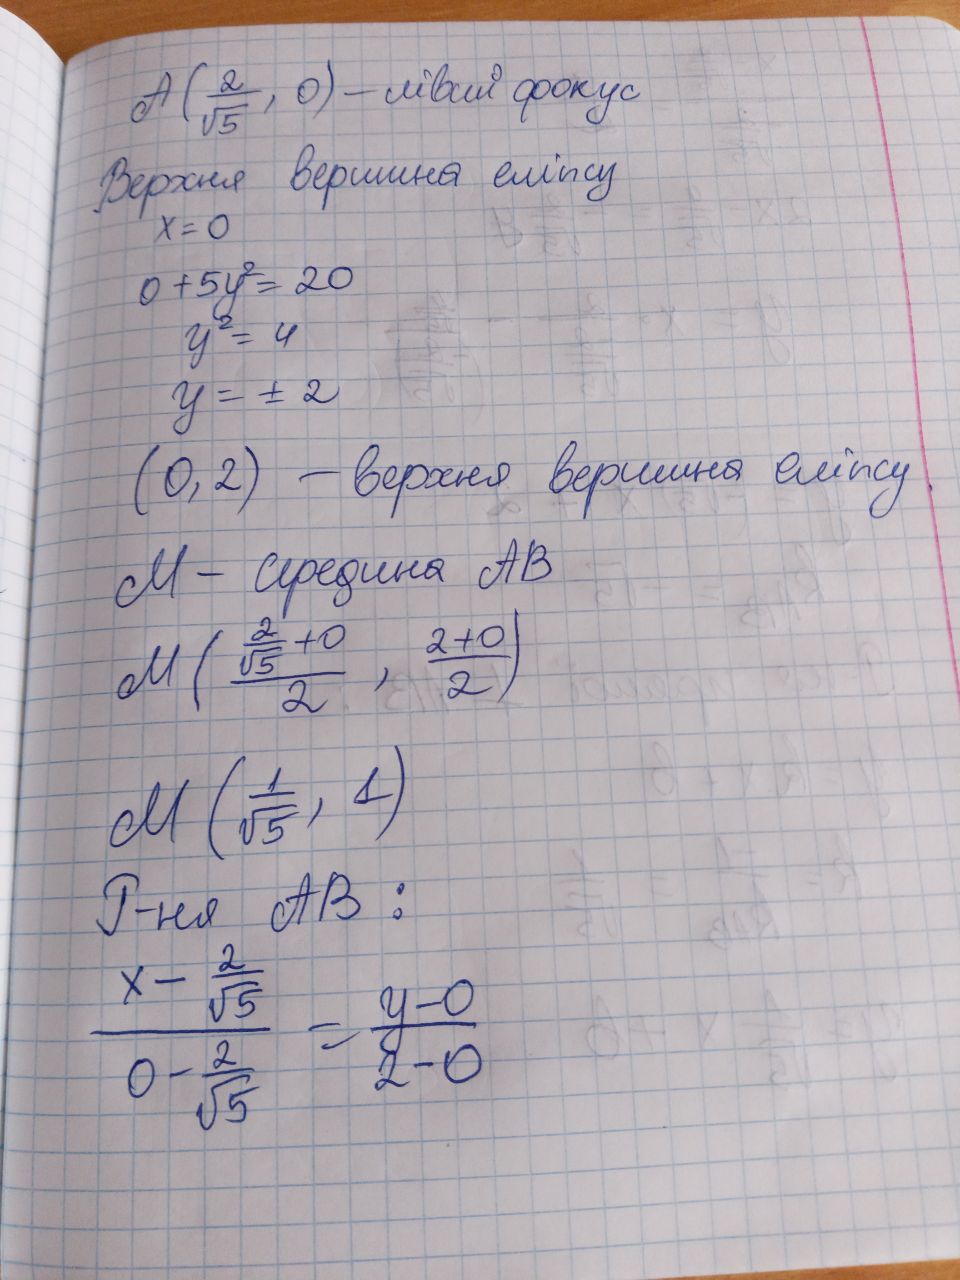 A(2/√5, 0) – лівий фокус
Верхня вершина еліпсу
x = 0
0 + 5y² = 20
y² = 4
y = ± 2
(0, 2) – верхня вершина еліпсу.
M – середина AB
M((2/√5 + 0)/2, (2+0)/2)
M(1/√5, 1)
Р-ня AB :
(x – 2/√5)/(0 – 2/√5) = (y – 0)/(2 – 0)